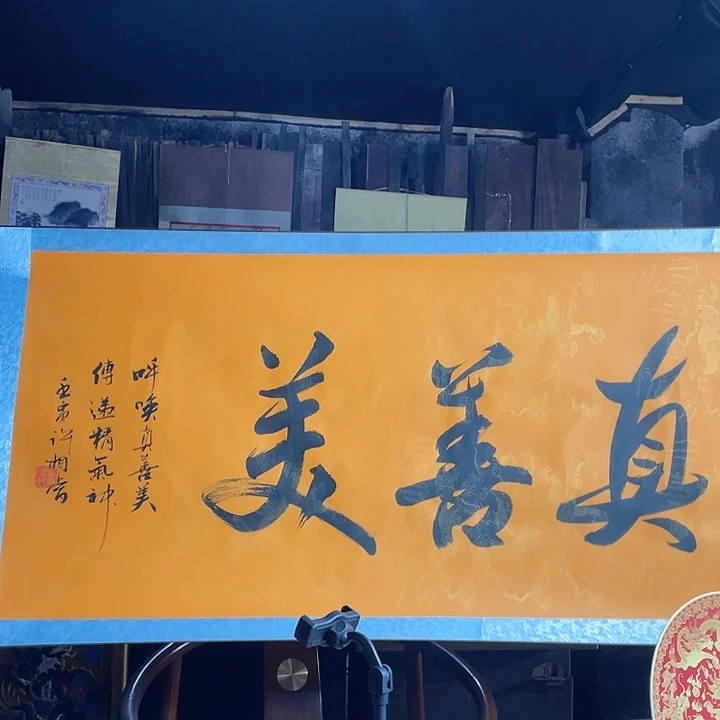 真善美
呼唤真善美
傳遞精氣神
壬寅許相育